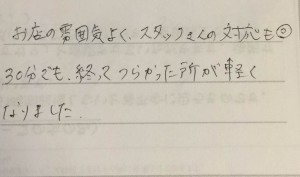 お店の雰囲気よく、スタッフさんの対応も◎
30分でも、終ってつらかった所が軽く
なりました。